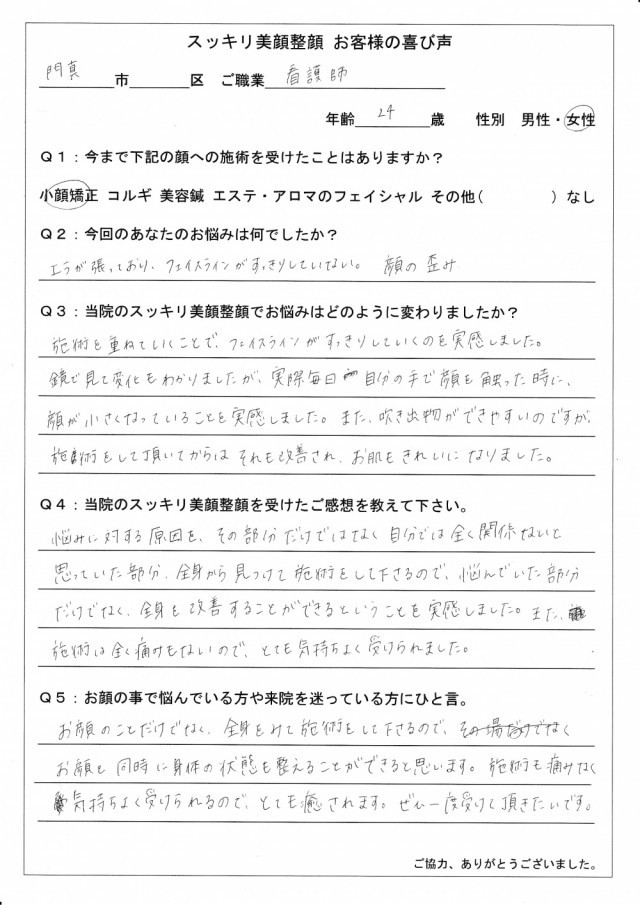 スッキリ美顔整顔 お客様の喜び声
門真 市 区 ご職業 看護師
年齢 24 歳 性別 男性・女性
Q1：今まで下記の顔への施術を受けたことはありますか？
小顔矯正 コルギ 美容鍼 エステ・アロマのフェイシャル その他( ) なし
Q2：今回のあなたのお悩みは何でしたか？
エラが張っており、フェイスラインがすっきりしていない。 顔の歪み
Q3：当院のスッキリ美顔整顔でお悩みはどのように変わりましたか？
施術を重ねていくことで、フェイスラインがすっきりしていくのを実感しました。
鏡で見て変化もわかりましたが、実際毎日自分の手で顔を触った時に、
顔が小さくなっていることを実感しました。また、吹き出物ができやすいのですが、
施術をして頂いてからはそれも改善され、お肌もきれいになりました。
Q4：当院のスッキリ美顔整顔を受けたご感想を教えて下さい。
悩みに対する原因を、その部分だけではなく自分では全く関係ないと
思っていた部分、全身から見つけて施術をして下さるので、悩んでいた部分
だけでなく、全身も改善することができるということを実感しました。また、
施術は全く痛みもないので、とても気持ちよく受けられました。
Q5：お顔の事で悩んでいる方や来院を迷っている方にひと言。
お顔のことだけでなく、全身をみて施術をして下さるので、その場だけでなく
お顔も同時に身体の状態も整えることができると思います。施術も痛みなく
気持ちよく受けられるので、とても癒されます。ぜひ一度受けて頂きたいです。
ご協力、ありがとうございました。